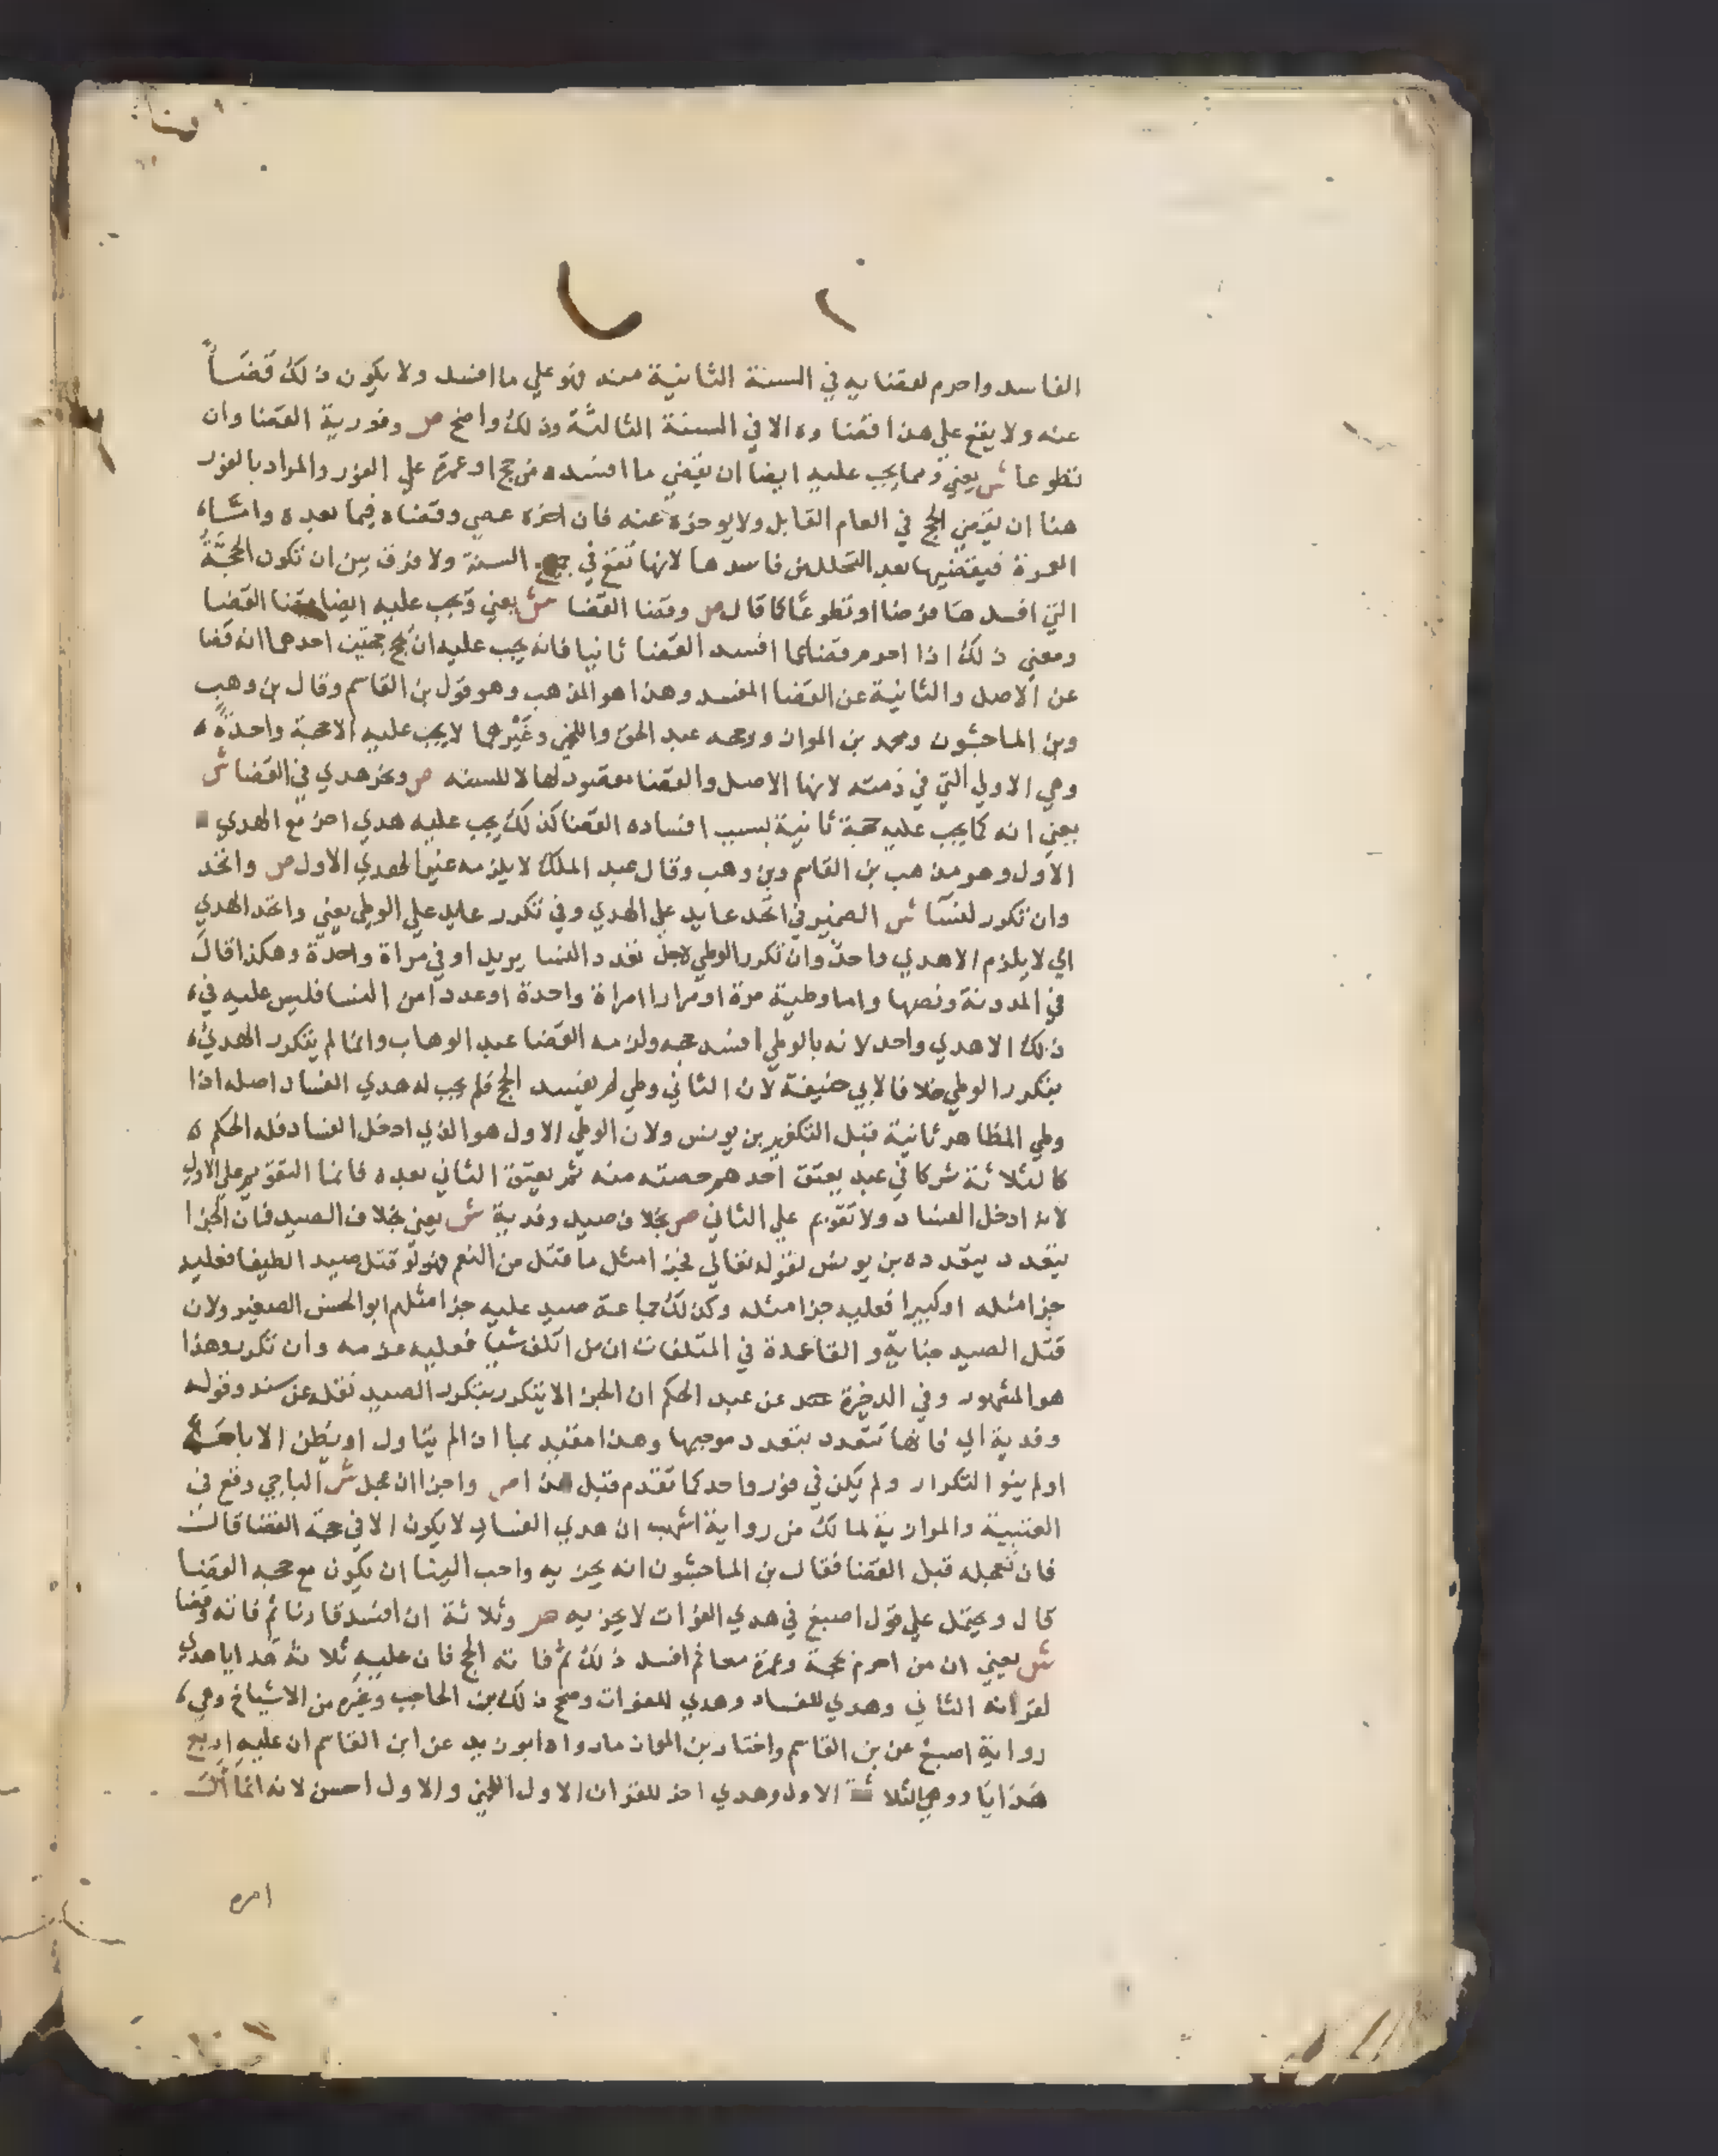 الفاسد واحرم لقضايه في السنة الثانية منه فهو علي ما افسد ولا يكون ذلك قضاً
عنه ولا يقع علي هذا قضاوه الا في السنة الثالثة وذلك واضح ص وفورية القضا وان
تطوعا ش يعني ومما يجب عليه ايضا ان يقضي ما افسده من حج او عمرة علي الفور والمراد بالفور
هنا ان يقضي الحج في العام القابل ولا يوخره عنه فان اخره عصي وقضاه فيما بعده واما
العمرة فيقضيها بعد التحلل من فاسدها لانها تقع في جميع السنة ولا فرق بين ان تكون الحجة
التي افسدها فرضا او تطوعًا كما قال ص وقضا القضا ش يعني ويجب عليه ايضا قضا القضا
ومعني ذلك اذا احرم قضا لما افسد القضا ثانيا فانه يجب عليه ان يحج حجتين احدهما انه قضا
عن الاصل والثانية عن القضا المفسد وهذا هو المذهب وهو قول بن القاسم وقال بن وهب
وبن الماجشون ومحمد بن المواز ورجحه عبد الحق واللخمي وغيرهما لا يجب عليه الا حجة واحدة
وهي الاولي التي في ذمته لانها الاصل والقضا مقصود لها لا للسنه ص ونحر هدي في القضا ش
يعني انه كما يجب عليه حجة ثانية بسبب افساده القضا كذلك يجب عليه هدي اخر مع الهدي
الاول وهو مذهب بن القاسم وبن وهب وقال عبد الملك لا يلزمه غير الهدي الاول ص واتحد
وان تكرر لنسا ش الضمير في اتحد عايد علي الهدي وفي تكرر عايد علي الوطي يعني واتحد الهدي
اي لا يلزم الا هدي واحد وان تكرر الوطي لاجل تعدد النسا يريد او في مراة واحدة وهكذا قال
في المدونة ونصها واما وطيه مرة او مرارا امراة واحدة او عددا من النسا فليس عليه في
ذلك الا هدي واحد لانه بالوطي افسد حجه ولزمه القضا عبد الوهاب وانما لم يتكرر الهدي
بتكرر الوطي خلافا لابي حنيفة لان الثاني وطي لم يفسد الحج فلم يجب له هدي الفساد اصله اذا
وطي المظاهر ثانية قبل التكفير بن يونس ولان الوطي الاول هو الذي ادخل الفساد فله الحكم
كالثلاثة شركا في عبد يعتق احدهم حصته منه ثم يعتق الثاني بعده فانما التقويم علي الاول
لانه ادخل الفساد ولا تقويم علي الثاني ص بخلاف صيد وفدية ش يعني بخلاف الصيد فان الجزا
يتعدد بتعدده بن يونس لقوله تعالي فجزا مثل ما قتل من النعم فهو لو قتل صيدا لطيفا فعليه
جزا مثله او كبيرا فعليه جزا مثله وكذلك جماعة صيد عليه جزا مثلهم ابو الحسن الصغير ولان
قتل الصيد جناية و القاعدة في المتلفات ان من اتلف شيا فعليه غرمه وان تكرر وهذا
هو المشهور وفي الذخيرة عن عبد الحكم ان الجزا لا يتكرر بتكرر الصيد نقله عن سند وقوله
وفدية اي فانها تتعدد بتعدد موجبها وهذا مقيد بما اذا لم يتاول او يظن الاباحة
او لم ينو التكرار ولم يكن في فور واحد كما تقدم قبل هذا ص واجزا ان عجل ش الباجي وقع في
العتبية والموازية لمالك من رواية اشهب ان هدي الفساد لا يكون الا في حجة القضا قال
فان تعجله قبل القضا فقال بن الماجشون انه يجزيه واحب الينا ان يكون مع حجه القضا
قال ويحتمل علي قول اصبغ في هدي الفوات لا يجزيه ص وثلاثة ان افسد قارنا ثم فاته وقضا
ش يعني ان من احرم بحجة وعمرة معا ثم افسد ذلك ثم فاته الحج فان عليه ثلاثة هدايا هدي
لقرانه الثاني وهدي للفساد وهدي للفوات وصح ذلك بن الحاجب وغيره من الاشياخ وهي
رواية اصبغ عن بن القاسم واختار بن المواز ما رواه ابو زيد عن ابن القاسم ان عليه اربع
هدايا وهي الثلاثة الاول وهدي اخر للقران الاول اللخمي والاول احسن لانه انما
امره